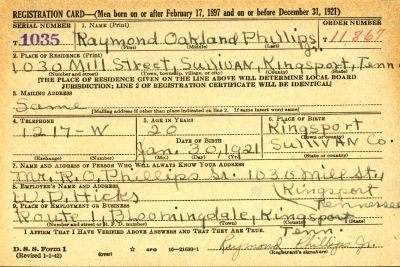 REGISTRATION CARD—(Men born on or after February 17, 1897 and on or before December 31, 1921)
SERIAL NUMBER 1. NAME (Print) ORDER NUMBER
T 1035 Raymond Oakland Phillips Jr. 11,867
(First) (Middle) (Last)
2. PLACE OF RESIDENCE (Print)
1030 Mill Street, Sullivan, Kingsport, Tenn
(Number and street) (Town, township, village, or city) (County) (State)
[THE PLACE OF RESIDENCE GIVEN ON THE LINE ABOVE WILL DETERMINE LOCAL BOARD
JURISDICTION; LINE 2 OF REGISTRATION CERTIFICATE WILL BE IDENTICAL]
3. MAILING ADDRESS
Same
(Mailing address if other than place indicated on line 2. If same insert word same)
4. TELEPHONE 5. AGE IN YEARS 6. PLACE OF BIRTH
1217-W 20 Kingsport
DATE OF BIRTH (Town or county)
Jan. 30, 1921 Sullivan Co.
(Exchange) (Number) (Mo.) (Day) (Yr.) (State or country)
7. NAME AND ADDRESS OF PERSON WHO WILL ALWAYS KNOW YOUR ADDRESS
Mr. R.O. Phillips Sr. 1030 Mill St.,
8. EMPLOYER'S NAME AND ADDRESS (Kingsport
W.D. Hicks Tennessee
9. PLACE OF EMPLOYMENT OR BUSINESS
Route 1, Bloomingdale, Kingsport
(Number and street or R. F. D. number) (Town) (County) (State)
Tenn.
I AFFIRM THAT I HAVE VERIFIED ABOVE ANSWERS AND THAT THEY ARE TRUE.
D. S. S. Form 1 (Revised 1-1-42) GPO 16—21630-1 Raymond Phillips Jr.
(Registrant's signature)